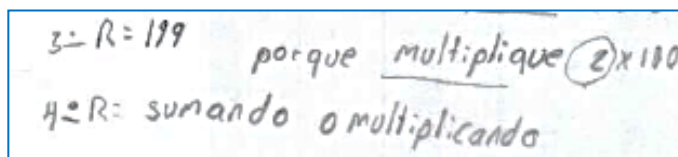 3.- R= 199 porque multiplique 2 x 100
4.- R= sumando o multiplicando